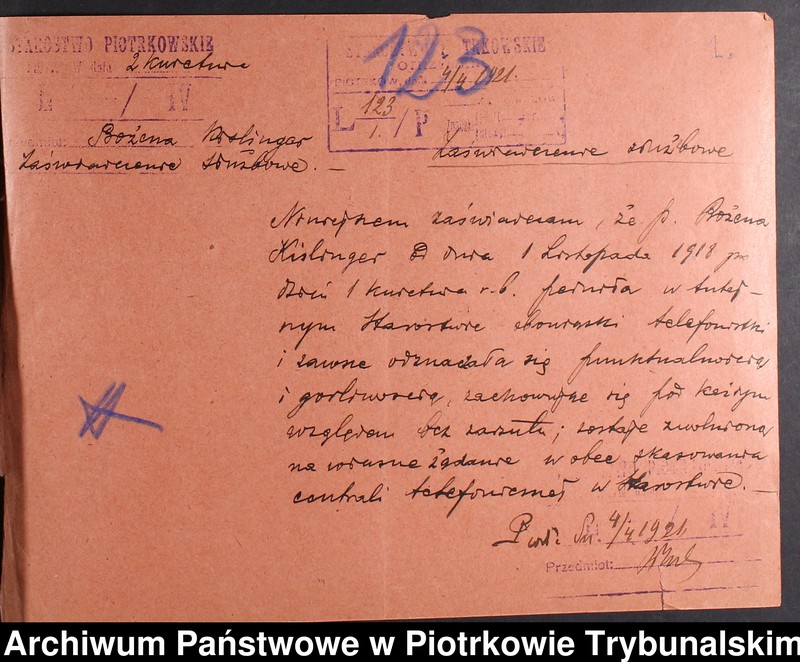 STAROSTWO PIOTRKOWSKIE
2 kwietnia
L. / IV
Bożena Kislinger
Zaświadczenie służbowe. —
123
PIOTRKÓW, dnia 4/4 1921.
L 123/1. / P
1.
Zaświadczenie służbowe
Niniejszem zaświadczam, że p. Bożena
Kislinger od dnia 1 Listopada 1918 po
dzień 1 kwietnia r.b. pełniła w tutej-
nym Starostwie obowiązki telefonistki
i zawsze odznaczała się punktualnością
i gorliwością, zachowując się pod każdym
względem bez zarzutu; zostaje zwolnioną
na własne żądanie w obec skasowania
centrali telefonicznej w Starostwie. —
4/4 1921
Przedmiot:
Archiwum Państwowe w Piotrkowie Trybunalskim